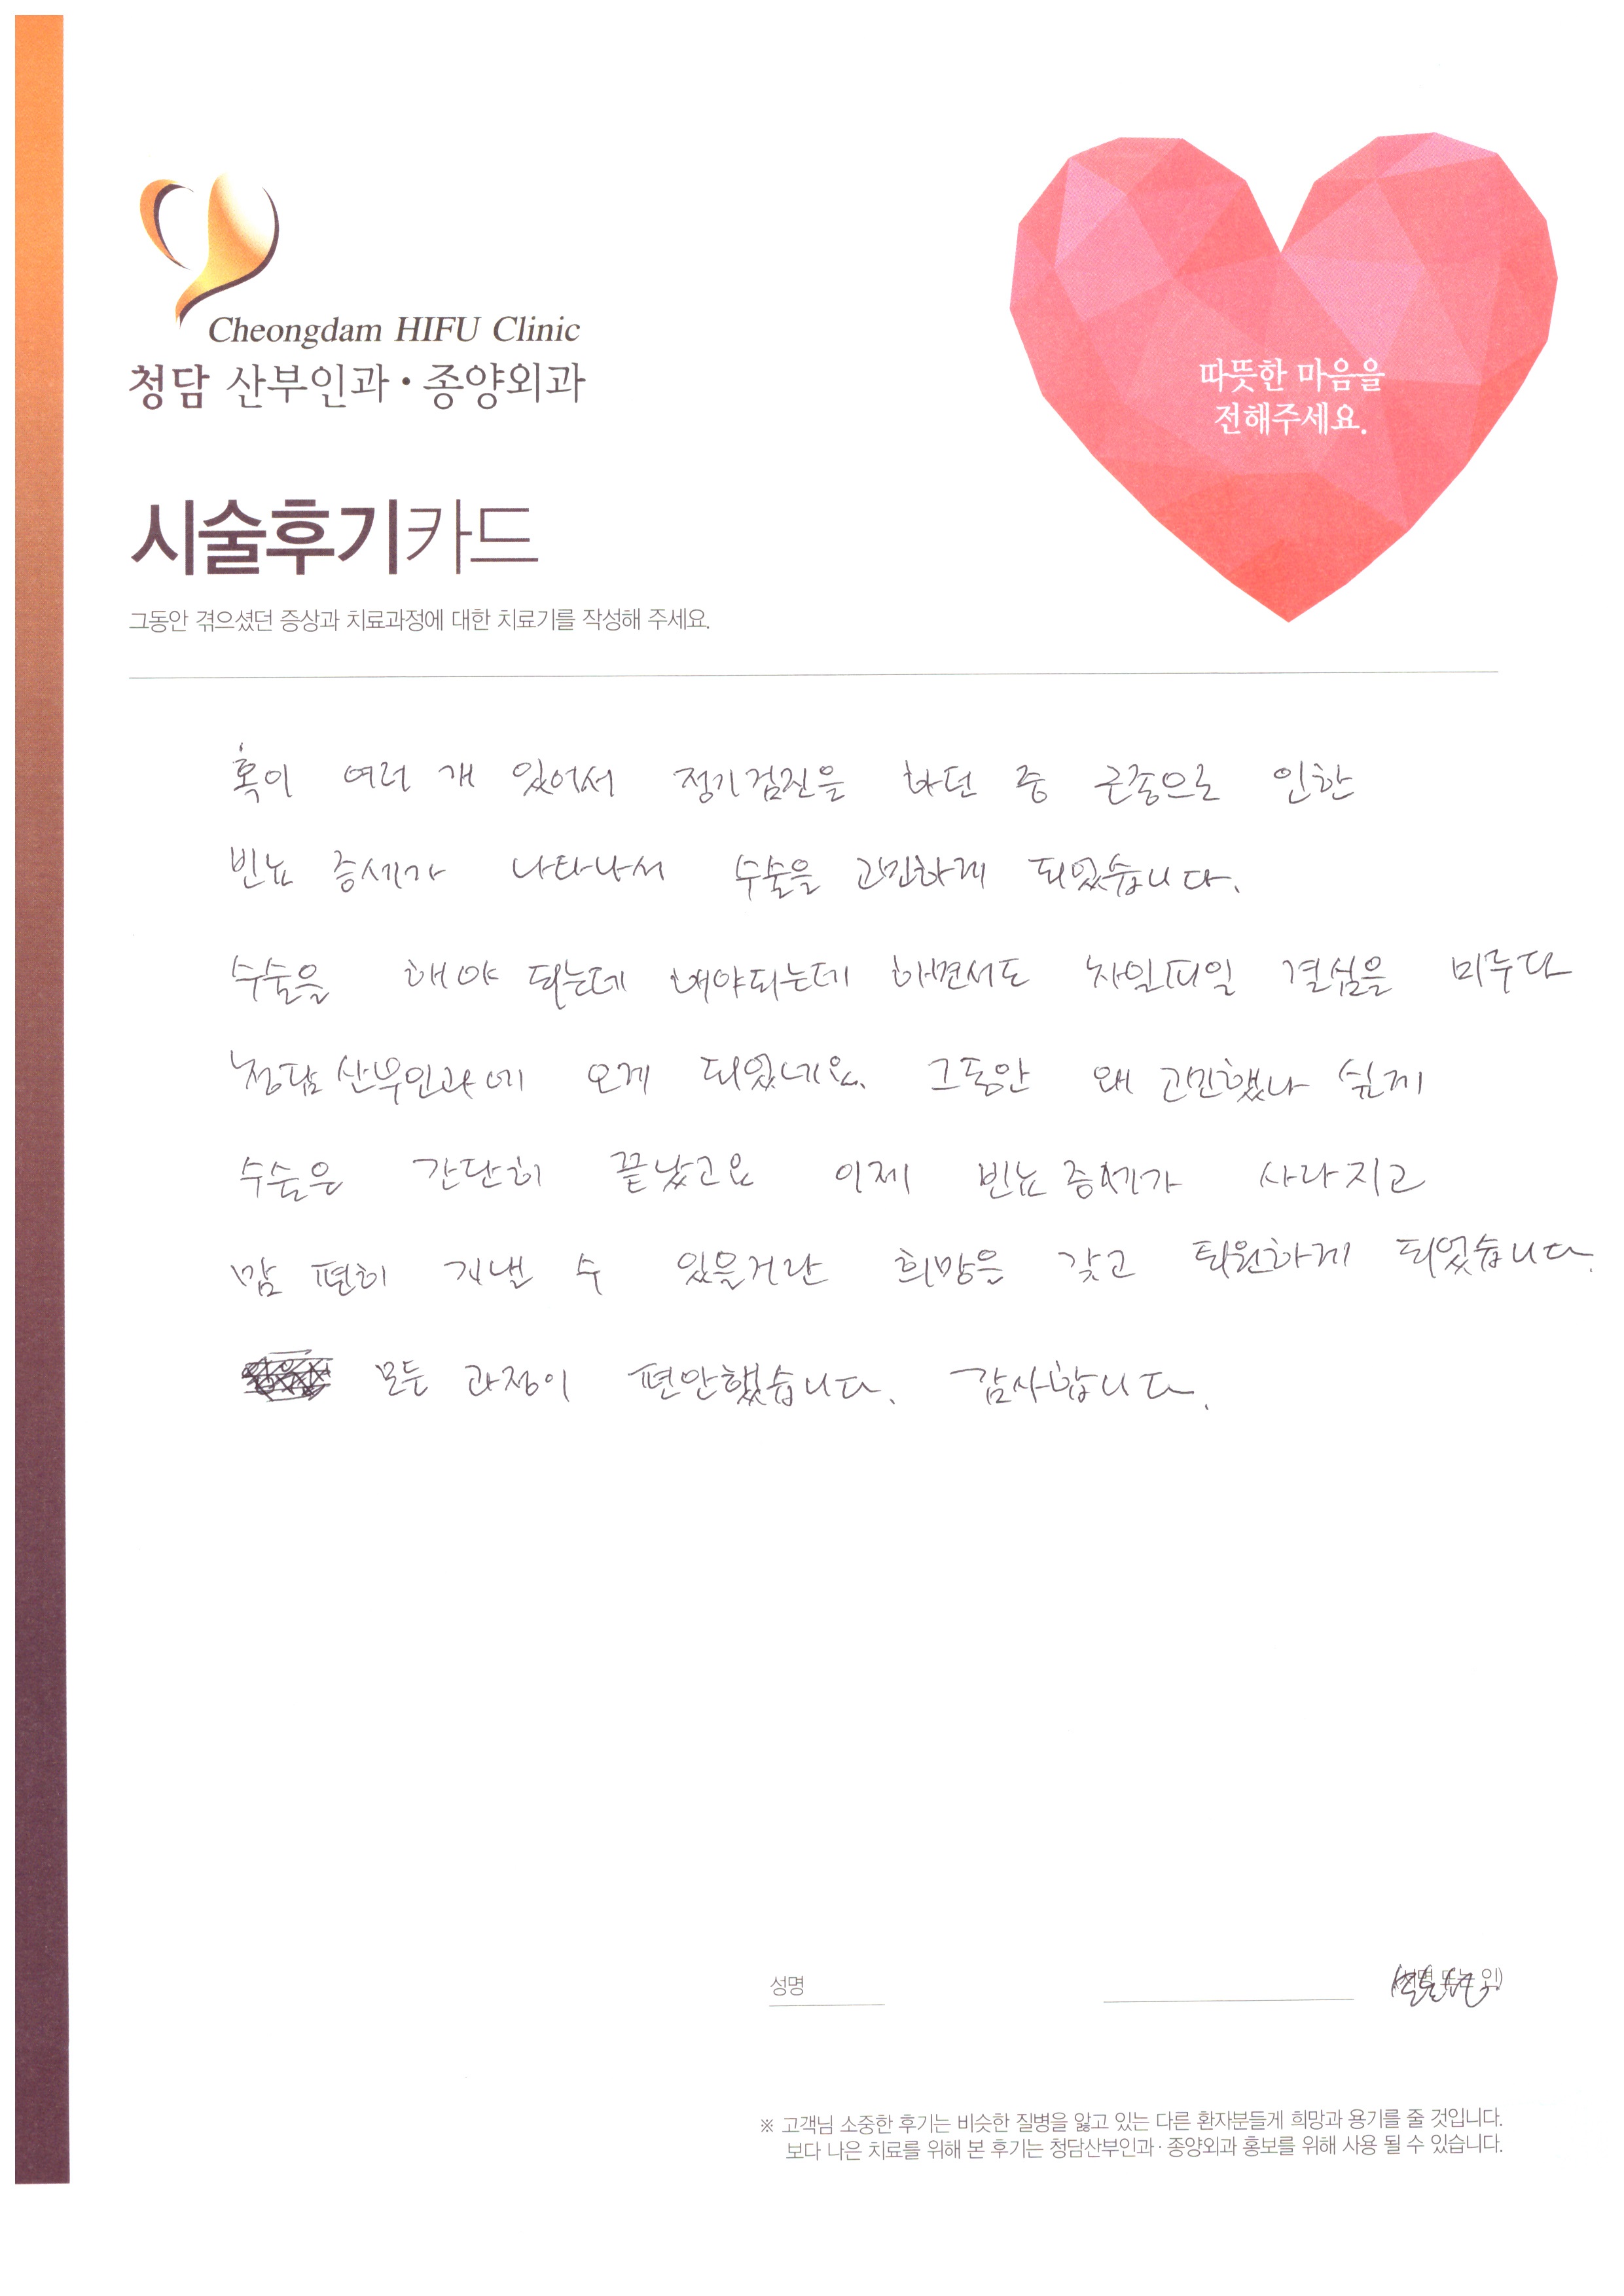 Cheongdam HIFU Clinic
청담 산부인과 · 종양외과
따뜻한 마음을
전해주세요.
시술후기카드
그동안 겪으셨던 증상과 치료과정에 대한 치료기를 작성해 주세요.
혹이 여러 개 있어서 정기검진을 하던 중 근종으로 인한
빈뇨 증세가 나타나서 수술을 고민하게 되었습니다.
수술을 해야 되는데 해야되는데 하면서도 차일피일 결심을 미루다
청담 산부인과에 오게 되었네요. 그동안 왜 고민했나 싶게
수술은 간단히 끝났고요 이제 빈뇨 증세가 사라지고
맘 편히 지낼 수 있을거란 희망을 갖고 퇴원하게 되었습니다.
모든 과정이 편안했습니다. 감사합니다.
성명
※ 고객님 소중한 후기는 비슷한 질병을 앓고 있는 다른 환자분들게 희망과 용기를 줄 것입니다.
보다 나은 치료를 위해 본 후기는 청담산부인과 · 종양외과 홍보를 위해 사용 될 수 있습니다.